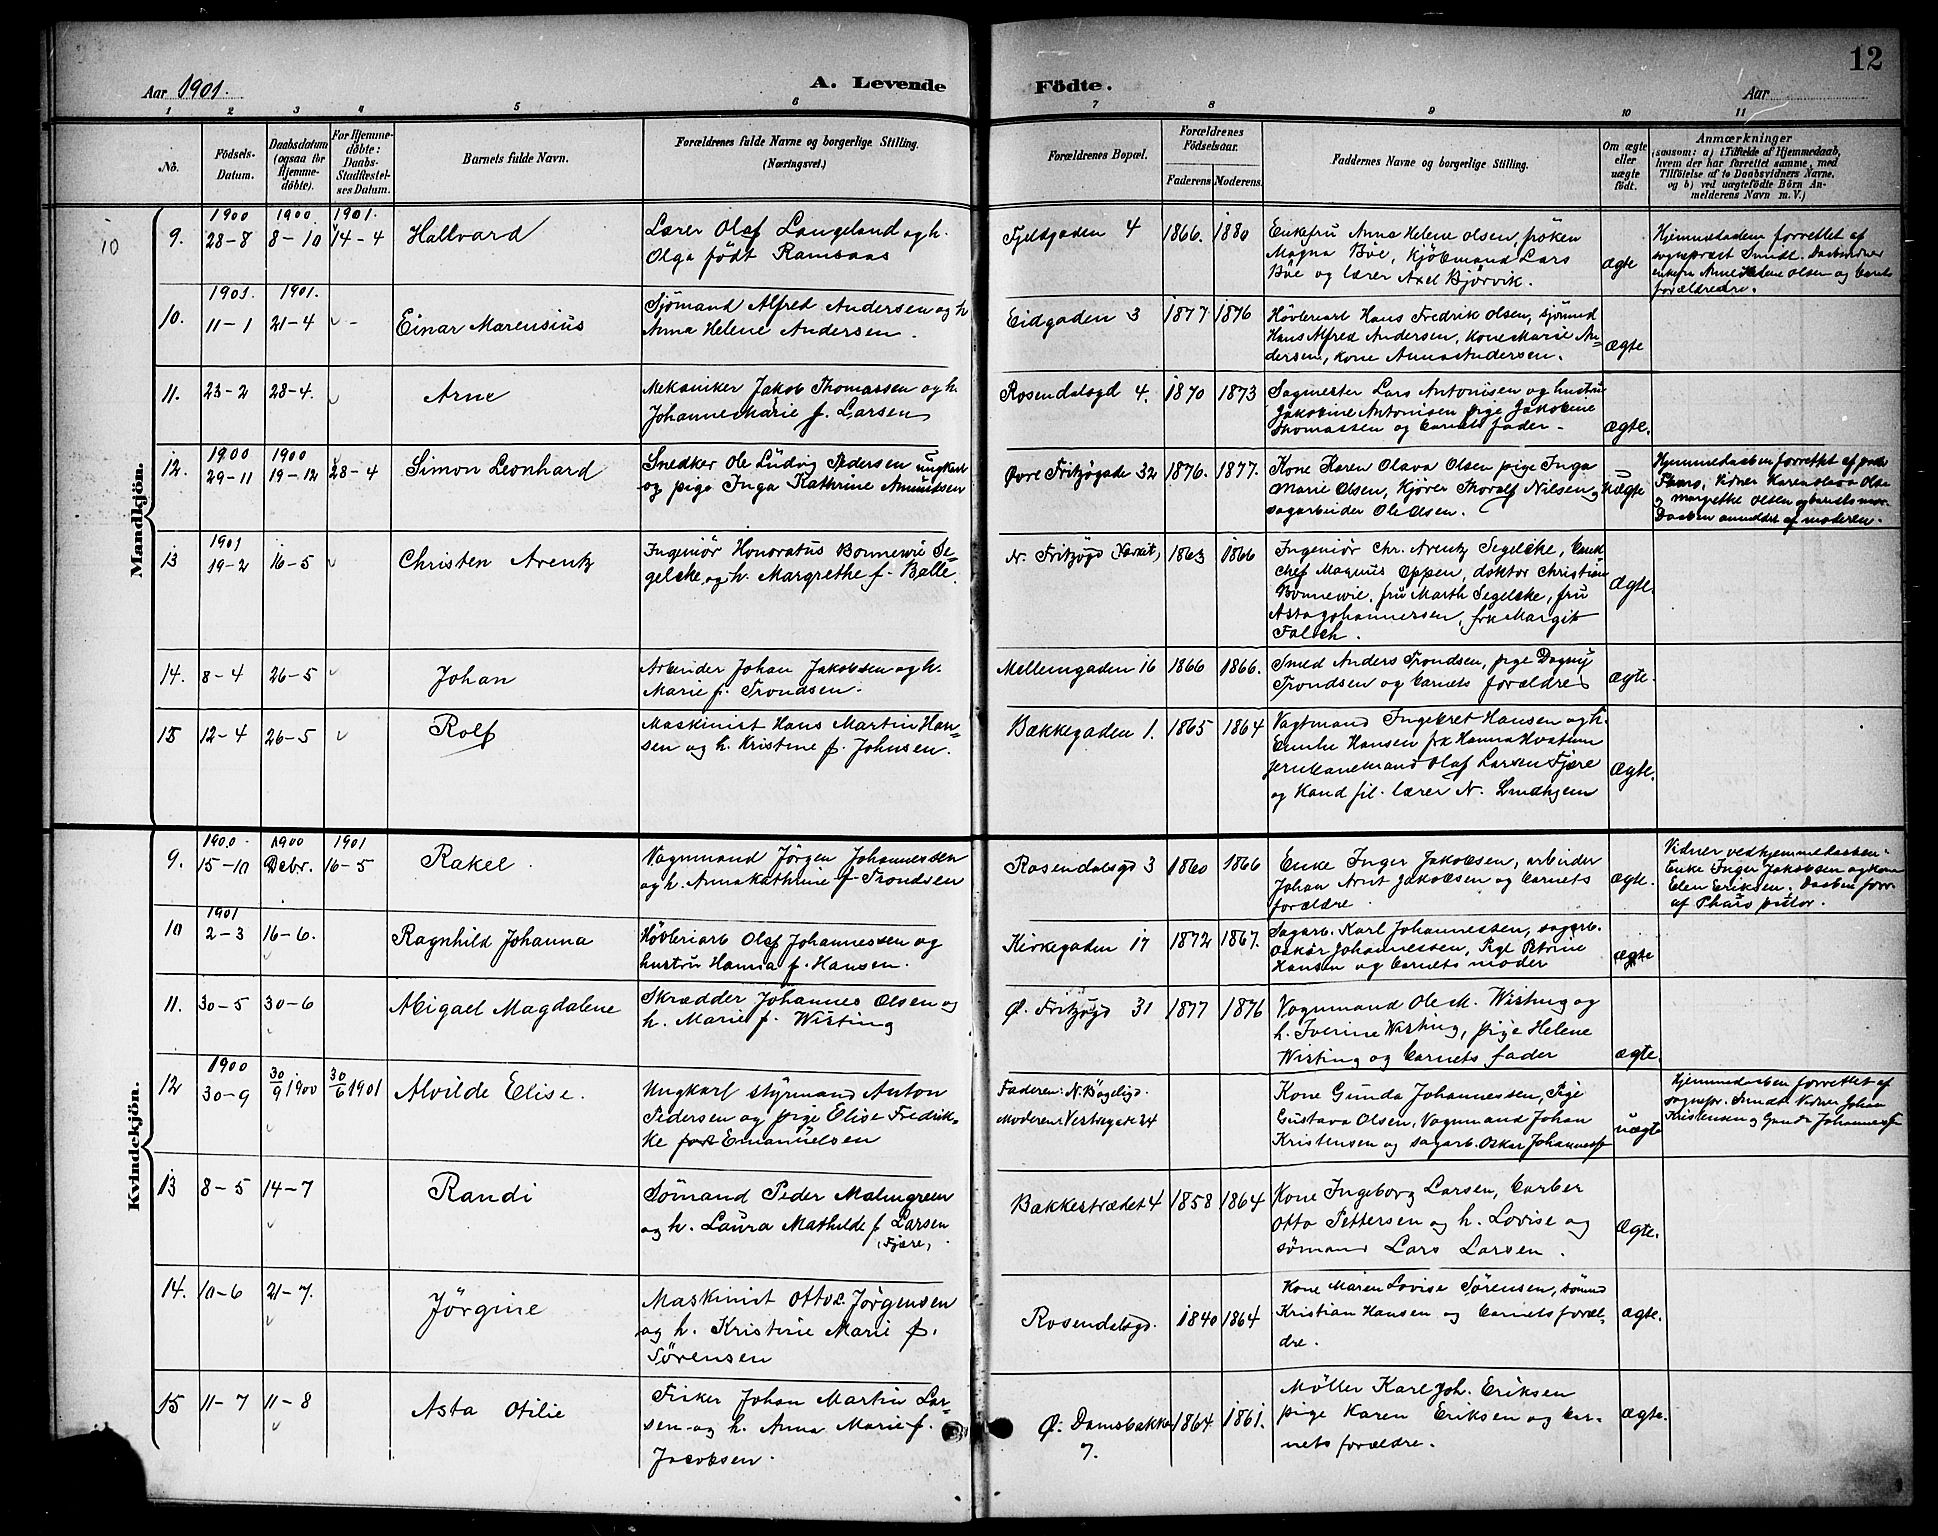 12
Aar 1901.
A. Levende
Födte.
Aar
1 2 3 4 5 6 7 8 9 10 11
No.
Födsels-
Datum.
Daabsdatum
(ogsaa for
Hjemme-
döbte).
For Hjemme-
döbte:
Daabs-
Stadfæstel-
ses Datum.
Barnets fulde Navn.
Forældrenes fulde Navne og borgerlige Stilling.
(Næringsvei.)
Forældrenes Bopæl.
Forældrenes
Födselsaar.
Faderens
Moderens.
Faddernes Navne og borgerlige Stilling.
Om ægte
eller
uægte
født.
Anmærkninger
(saasom: a) i Tilfælde af Hjemmedaab,
hvem der har forrettet samme, med
Tilföielse af to Daabsvidners Navne,
og b) ved uægtefödte Börn An-
melderens Navn m. V.)
Mandkjön.
10
9.
1900
28-8
1900
8-10
1901.
14-4
Hallvard
Lærer Olaf Langeland og h.
Olga født Ramsaas
Fjeldgaden 4
1866.
1880
Enkefru Anna Helene Olsen, frøken
Magna Bøe, Kjøbmand Lars
Bøe og lærer Axel Bjørvik.
ægte
Hjemmedaaben forrettet af
sognepræst Smidt. Daabsvidner
enkefru Anne Helene Olsen og barnets
forældre.
10.
1901.
11-1
1901.
21-4
Einar Marensius
Sjömand Alfred Andersen og h
Anna Helene Andersen.
Eidgaden 3
1877
1876
Høvleriarb Hans Fredrik Olsen, sjømnd
Hans Alfred Andersen, Kone Marie An-
dersen, kone Anna Andersen.
ægte
11.
23-2
28-4.
Arne
Mekaniker Jakob Thomassen og h.
Johanne Marie f. Larsen
Rosendalsgd 4.
1870
1873
Sagmester Lars Antonisen og hustru
Jakobine Antonisen pige Jakobine
Thomassen og barnets fader.
ægte.
12.
1900
29-11
1900
19-12
28-4
Simon Leonhard
Snedker Ole Ludvig Pedersen ungkarl
og pige Inga Kathrine Amundsen
Øvre Fritzøgade 32
1876.
1877.
Kone Karen Olava Olsen pige Inga
Marie Olsen, Kjører Thoralf Nilsen og
sagarbeider Ole Olsen.
uægte
Hjemmedaaben forrettet af
Phars, Vidner Karen Olava Olsen
og Margrethe Olsen og barnets mor.
Daaben anmeldt af moderen.
13
1901
19-2
16-5
Christen Arentz
Ingeniør Honoratus Bonnevie Se-
gelcke, og h. Margrethe f. Balle.
N. Fritzøgd
1863
1866
Ingeniør Chr. Arentz Segelcke, bank
chef Magnus Oppen, doktor Christian
Bonnevie, fru Marth Segelcke, fru
Asta Johannersen, frk Margit
Falch.
Ægte.
14.
8-4
26-5
Johan
Arbeider Johan Jakobsen og h.
Marie f. Trondsen.
Mellemgaden 16
1866
1866.
Smed Anders Trondsen, pige Dagny
Trondsen og barnets forældre
ægte.
15
12-4
26-5
Rolf
Maskinist Hans Martin Han-
sen og h. Kristine f. Johnsen.
Bækkegaden 1.
1865
1864
Vagtmand Ingebret Hansen og h.
Emilie Hansen frk Hanna Hvatum
jernbanemand Olaf Larsen Fjære
og Kand fil. lærer N. Lmdhjem
Ægte.
Kvindekjön.
9.
1900.
15-10
1900
Debr.
1901
16-5
Rakel.
Vognmand Jörgen Johannessen
og h. Anna Kathrine f Trondsen
Rosendalsgd 3
1860
1866
Enke Inger Jakobsen, arbeider
Johan Arnt Jakobsen og barnets
forældre.
ægte.
Vidner ved hjemmedaaben:
Enke Inger Jakobsen og kone
Elen Eriksen. Daaben forr.
af Phars pistor.
10
1901
2-3
16-6.
Ragnhild Johanna
Høvleriarb Olaf Johannessen og
hustru Hanna f. Hansen.
Kirkegaden 17
1872
1867.
Sagarb. Karl Johannessen, sagarb.
Oskar Johannessen, Pige Petrine
Hansen og barnets moder
ægte
11.
30-5
30-6
Abigael Magdalene
Skrædder Johannes Olsen og
h. Marie f. Wisting
Ø. Fritzøgd 31
1877
1876
Vognmand Ole M. Wisting og
h. Iverine Wisting, pige Helene
Wisting og barnets fader
ægte.
12
1900
30-9
30/9 1900
30/6 1901
Alvilde Elise.
Ungkarl styrmand Anton
Pedersen og pige Elise Fredrik-
ke født Emanuelsen
Faderen: N. Bøgeligd.
Moderen: Vestregate 24
Kone Gunda Johannessen, Pige
Gustava Olsen, Vognmand Johan
Kristensen og sagarb. Oskar Johannessen
uægte
Hjemmedaaben forrettet af
sognepr. Smidt. Vidner Johan
Kristensen og Gunda Johannessen
13
8-5
14-7
Randi
Sömand Peder Malmgreen
og h. Laura Mathilde f Larsen
(Fjære).
Bakkestrædet 4
1858
1864
Kone Ingeborg Larsen, barber
Otto Pettersen og h. Lovise og
sömand Lars Larsen.
Ægte.
14.
10-6
21-7.
Jörgine
Maskinist Otto L. Jörgensen
og h. Kristine Marie f.
Sörensen
Rosendalsgd.
1840
1864
Kone Maren Lovise Sörensen, sömnd
Kristian Hansen og barnets foræl-
dre.
ægte.
15
11-7
11-8
Asta Otilie
Fisker Johan Martin Lar-
sen og h. Anna Marie f.
Jacobsen.
Ø. Damsbakke
7.
1864
1861.
Möller Karl Joh. Eriksen
pige Karen Eriksen og bar-
nets forældre.
ægte.